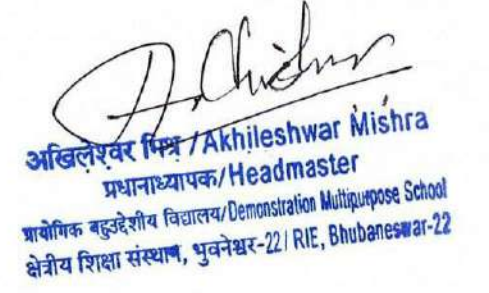 अखिलेश्वर मिश्र / Akhileshwar Mishra
प्रधानाध्यापक/Headmaster
प्रायोगिक बहुउद्देशीय विद्यालय/Demonstration Multipurpose School
क्षेत्रीय शिक्षा संस्थान, भुवनेश्वर-22/ RIE, Bhubaneswar-22